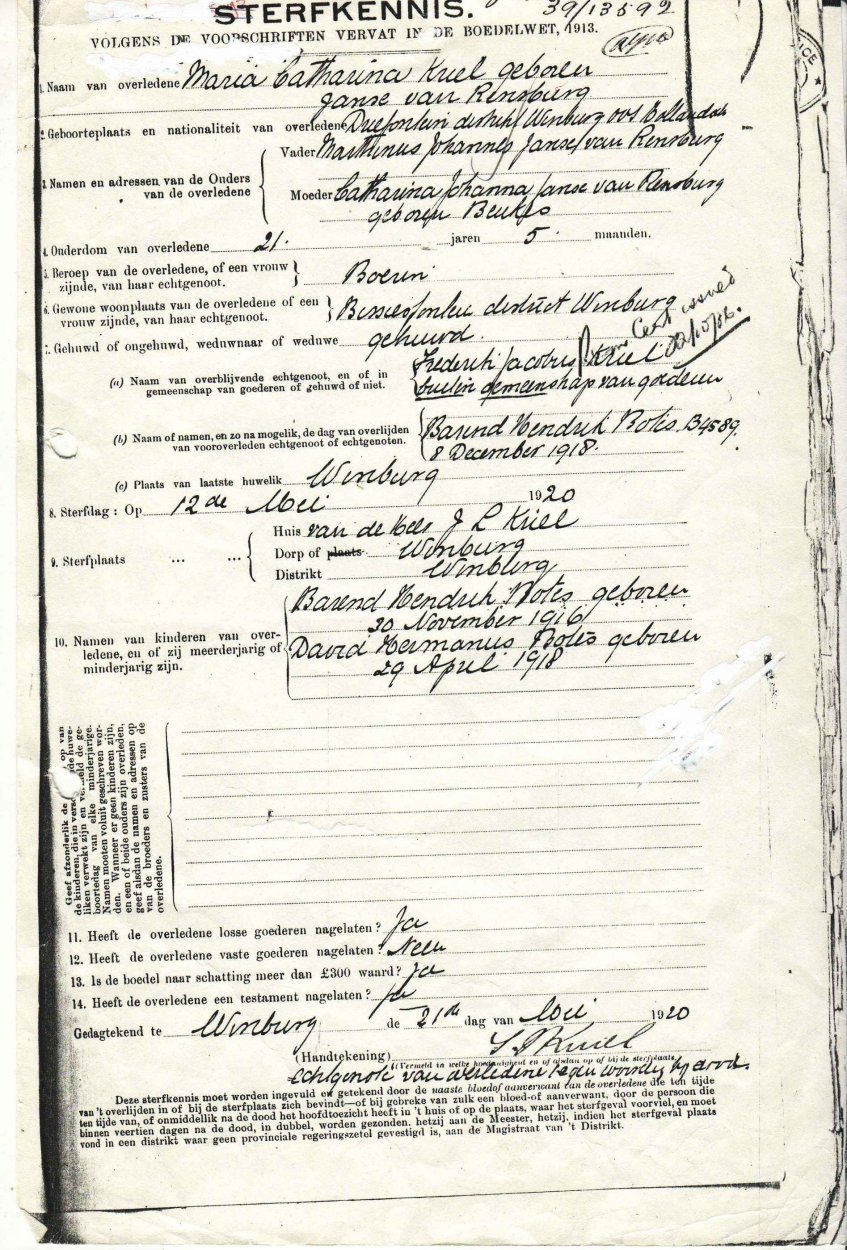 STERFKENNIS.
39/13592
VOLGENS DE VOORSCHRIFTEN VERVAT IN DE BOEDELWET, 1913.
1. Naam van overledene Maria Catharina Kriel geboren
Janse van Rensburg
2. Geboorteplaats en nationaliteit van overledene Driefontein district Winburg OVS
Vader Marthinus Johannes Janse van Rensburg
3. Namen en adressen van de Ouders
van de overledene
Moeder Catharina Johanna Janse van Rensburg
geboren Beukes
4. Onderdom van overledene 21. jaren 5. maanden.
5. Beroep van de overledene, of een vrouw
zijnde, van haar echtgenoot.
Boerin
6. Gewone woonplaats van de overledene of een
vrouw zijnde, van haar echtgenoot.
district Winburg
Cert issued
7. Gehuwd of ongehuwd, weduwnaar of weduwe gehuwd.
(a) Naam van overblijvende echtgenoot, en of in
gemeenschap van goederen of gehuwd of niet.
Frederik Jacobus Kriel
buiten gemeenschap van goederen
(b) Naam of namen, en zo na mogelik, de dag van overlijden
van vooroverleden echtgenoot of echtgenoten.
Barend Hendrik Botes. B4589.
8 December 1918.
(c) Plaats van laatste huwelik Winburg
8. Sterfdag: Op 12de Mei 1920
9. Sterfplaats ... ...
Huis van de Heer J L Kriel
Dorp of plaats Winburg
Distrikt Winburg
10. Namen van kinderen van over-
ledene, en of zij meerderjarig of
minderjarig zijn.
Barend Hendrik Botes geboren
20 November 1916
David Hermanus Botes geboren
29 April 1918
Geef afzonderlik de op van
de kinderen, die in huwe-
liken verwekt zijn en de ge-
boortedag van elke minderjarige.
Namen moeten voluit geschreven wor-
den. Wanneer er geen kinderen zijn,
en een of beide ouders zijn overleden,
geef alsdan de namen en adressen op
van de broeders en zusters van de
overledene.
11. Heeft de overledene losse goederen nagelaten? Ja
12. Heeft de overledene vaste goederen nagelaten? Neen
13. Is de boedel naar schatting meer dan £300 waard? Ja
14. Heeft de overledene een testament nagelaten? Ja
Gedagtekend te Winburg de 21ste dag van Mei 1920
(Handtekening) Kriel
Vermeld in welke hoedanigheid en of alsdan op of bij de sterfplaats.
Echtgenoot van overledene tegenwoordig bij dood.
Deze sterfkennis moet worden ingevuld en getekend door de naaste bloed of aanverwant van de overledene die ten tijde
van 't overlijden in of bij de sterfplaats zich bevindt—of bij gebreke van zulk een bloed-of aanverwant, door de persoon die
ten tijde van, of onmiddellik na de dood het hoofdtoezicht heeft in 't huis of op de plaats, waar het sterfgeval voorviel, en moet
binnen veertien dagen na de dood, in dubbel, worden gezonden. hetzij aan de Meester, hetzij, indien het sterfgeval plaats
vond in een distrikt waar geen provinciale regeringszetel gevestigd is, aan de Magistraat van 't Distrikt.